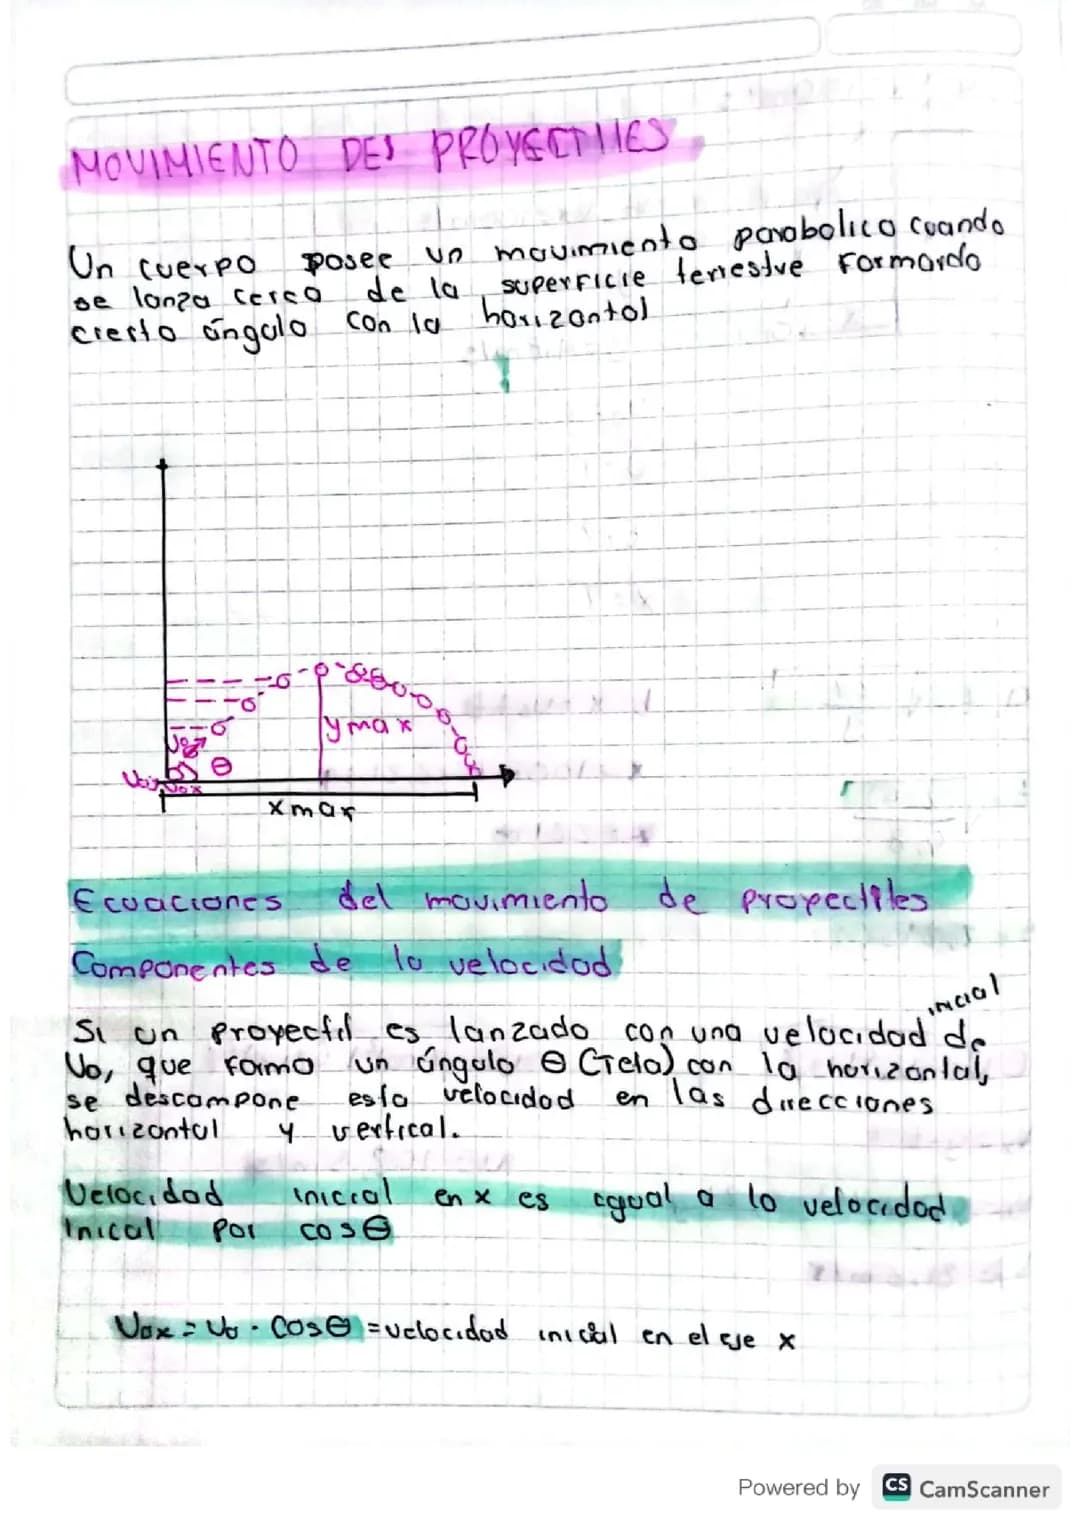 MOVIMIENTO DEl PROYECTIlES
Un cuerpo posee un movimiento parabolico cuando
se lanza cerca de la superficie terrestre Formando
cierto ángulo con la horizontal
Vo
Voy
Vox
θ
ymax
xmax
Ecuaciones del movimiento de proyectiles
Componentes de la velocidad
inicial
Si un proyectil es lanzado con una velocidad de
Vo, que forma un ángulo θ (Teta) con la horizontal,
se descompone esta velocidad en las direcciones
horizontal y vertical.
Velocidad inicial en x es egual a la velocidad
Inical por cosθ
Vox = Vo · Cosθ = velocidad inicial en el eje x
Powered by CS CamScanner